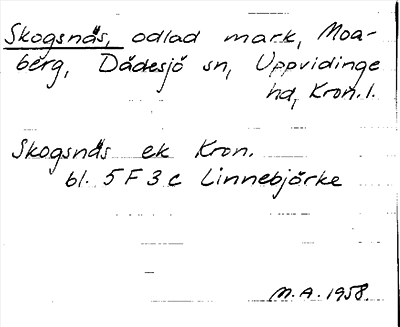 Skogsnäs, odlad mark, Moa-
berg, Dädesjö sn, Uppvidinge
hd, Kron. l.
Skogsnäs ek Kron.
bl. 5 F 3 c Linnebjörke
M.A. 1958.